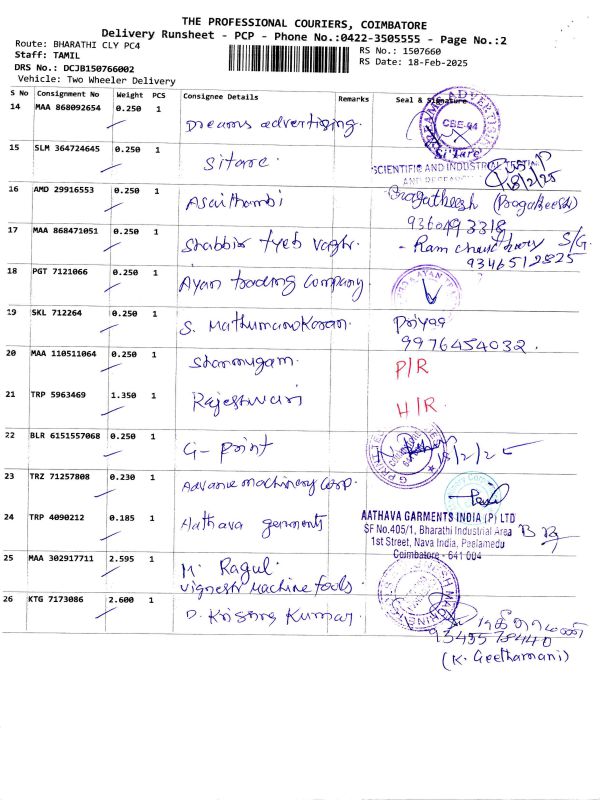 THE PROFESSIONAL COURIERS, COIMBATORE
Delivery Runsheet - PCP - Phone No.:0422-3505555 - Page No.:2
Route: BHARATHI CLY PC4
Staff: TAMIL
DRS No.: DCJB150766002
Vehicle: Two Wheeler Delivery
RS No.: 1507660
RS Date: 18-Feb-2025
S No Consignment No Weight PCS Consignee Details Remarks Seal & Signature
14 MAA 868092654 0.250 1 Dreams advertising.
CBE-04
15 SLM 364724645 0.250 1 Sitarc
Si'Tarc
SCIENTIFIC AND INDUSTRIAL TESTING
AND RESEARCH
18/2/25
16 AMD 29916553 0.250 1 Asaithambi
Pragatheesh (Pragatheesh)
9360493318
17 MAA 868471051 0.250 1 Shabbir tyeb vaghr.
- Ram chaudhary S/G.
9346512825
18 PGT 7121066 0.250 1 Ayan trading company
19 SKL 712264 0.250 1 S. Mathumanokaran.
Priyaa
9976454032.
20 MAA 110511064 0.250 1 Shanmugam. P/R
21 TRP 5963469 1.350 1 Rajeshwari H/R.
22 BLR 6151557068 0.250 1 G- Print
18/2/25
23 TRZ 71257808 0.230 1 Advance machinery corp.
24 TRP 4090212 0.185 1 Aathava garments
AATHAVA GARMENTS INDIA (P) LTD
SF No.405/1, Bharathi Industrial Area
1st Street, Nava India, Peelamedu
Coimbatore - 641 004
25 MAA 302917711 2.595 1 M. Ragul.
Vignesh Machine tools
26 KTG 7173086 2.600 1 D. Krishna Kumar.
9345578440
(K. Geethamani)